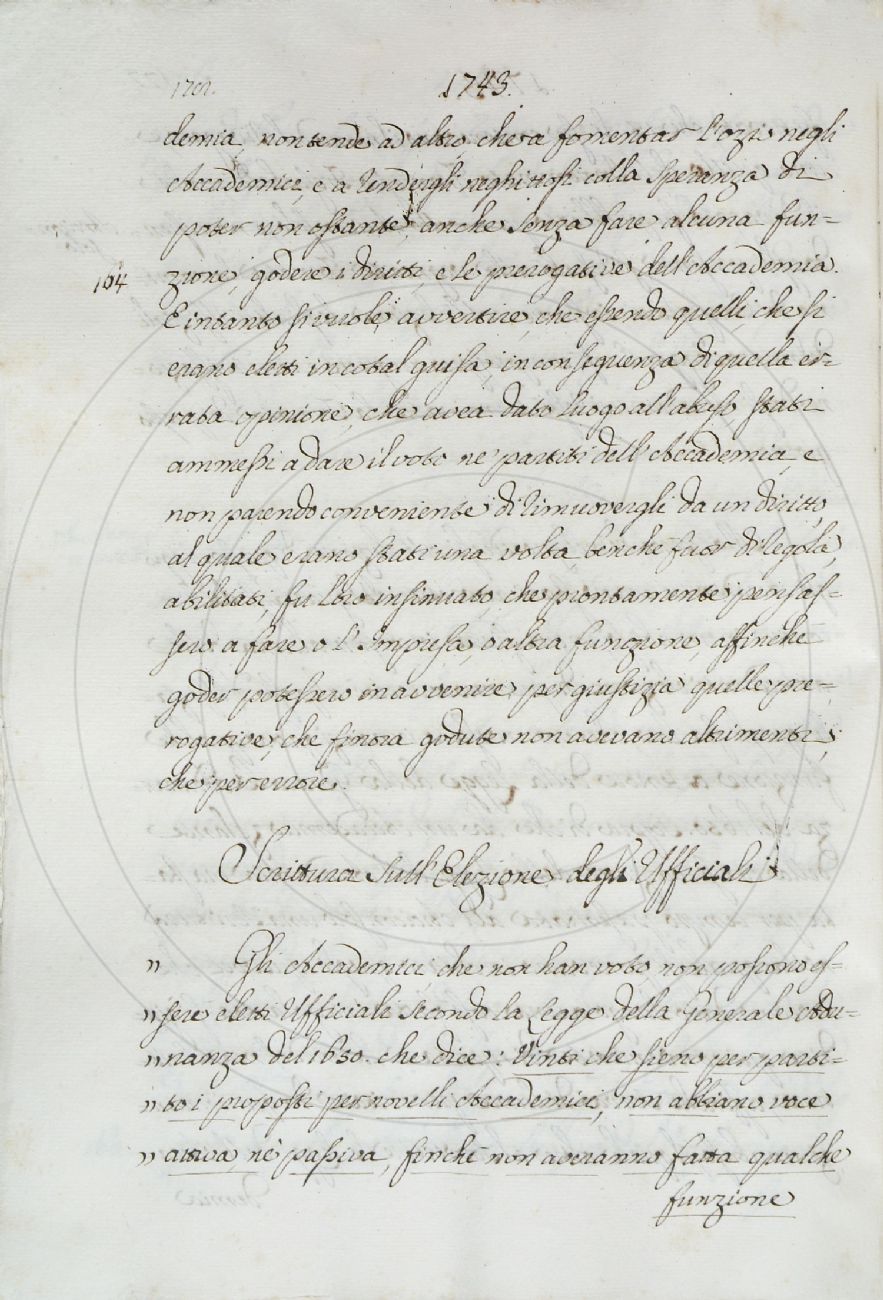 1743.
demia, non tende ad altro che a fomentar l'ozio negli
Accademici, e a rendergli neghittosi colla speranza di
poter non ostante, anche senza fare alcuna fun=
164 zione, godere i diritti, e le prerogative dell'Accademia.
E intanto si vuole avvertire, che essendo quelli, che si
erano eletti in cotal guisa, in conseguenza di quella er=
rata opinione, che avea dato luogo all'abuso, stati
ammessi a dare il voto ne' partiti dell'Accademia, e
non parendo conveniente di rimuovergli da un diritto,
al quale erano stati una volta, benchè fuor di regola,
abilitati, fu loro insinuato, che prontamente pensas=
sero a fare o l'Impresa, o altra funzione, affinchè
goder potessero in avvenire per giustizia quelle pre=
rogative, che finora godute non avevano altrimenti,
che per errore.
Scrittura sull'Elezione degli Ufficiali
" Gli Accademici che non han voto non possono es=
" sere eletti Ufficiali secondo la Legge della Generale Adu=
" nanza del 1650. che dice: Vinti che sieno per parti=
" to i proposti per novelli Accademici, non abbiano voce
" attiva, nè passiva, finchè non averanno fatta qualche
funzione